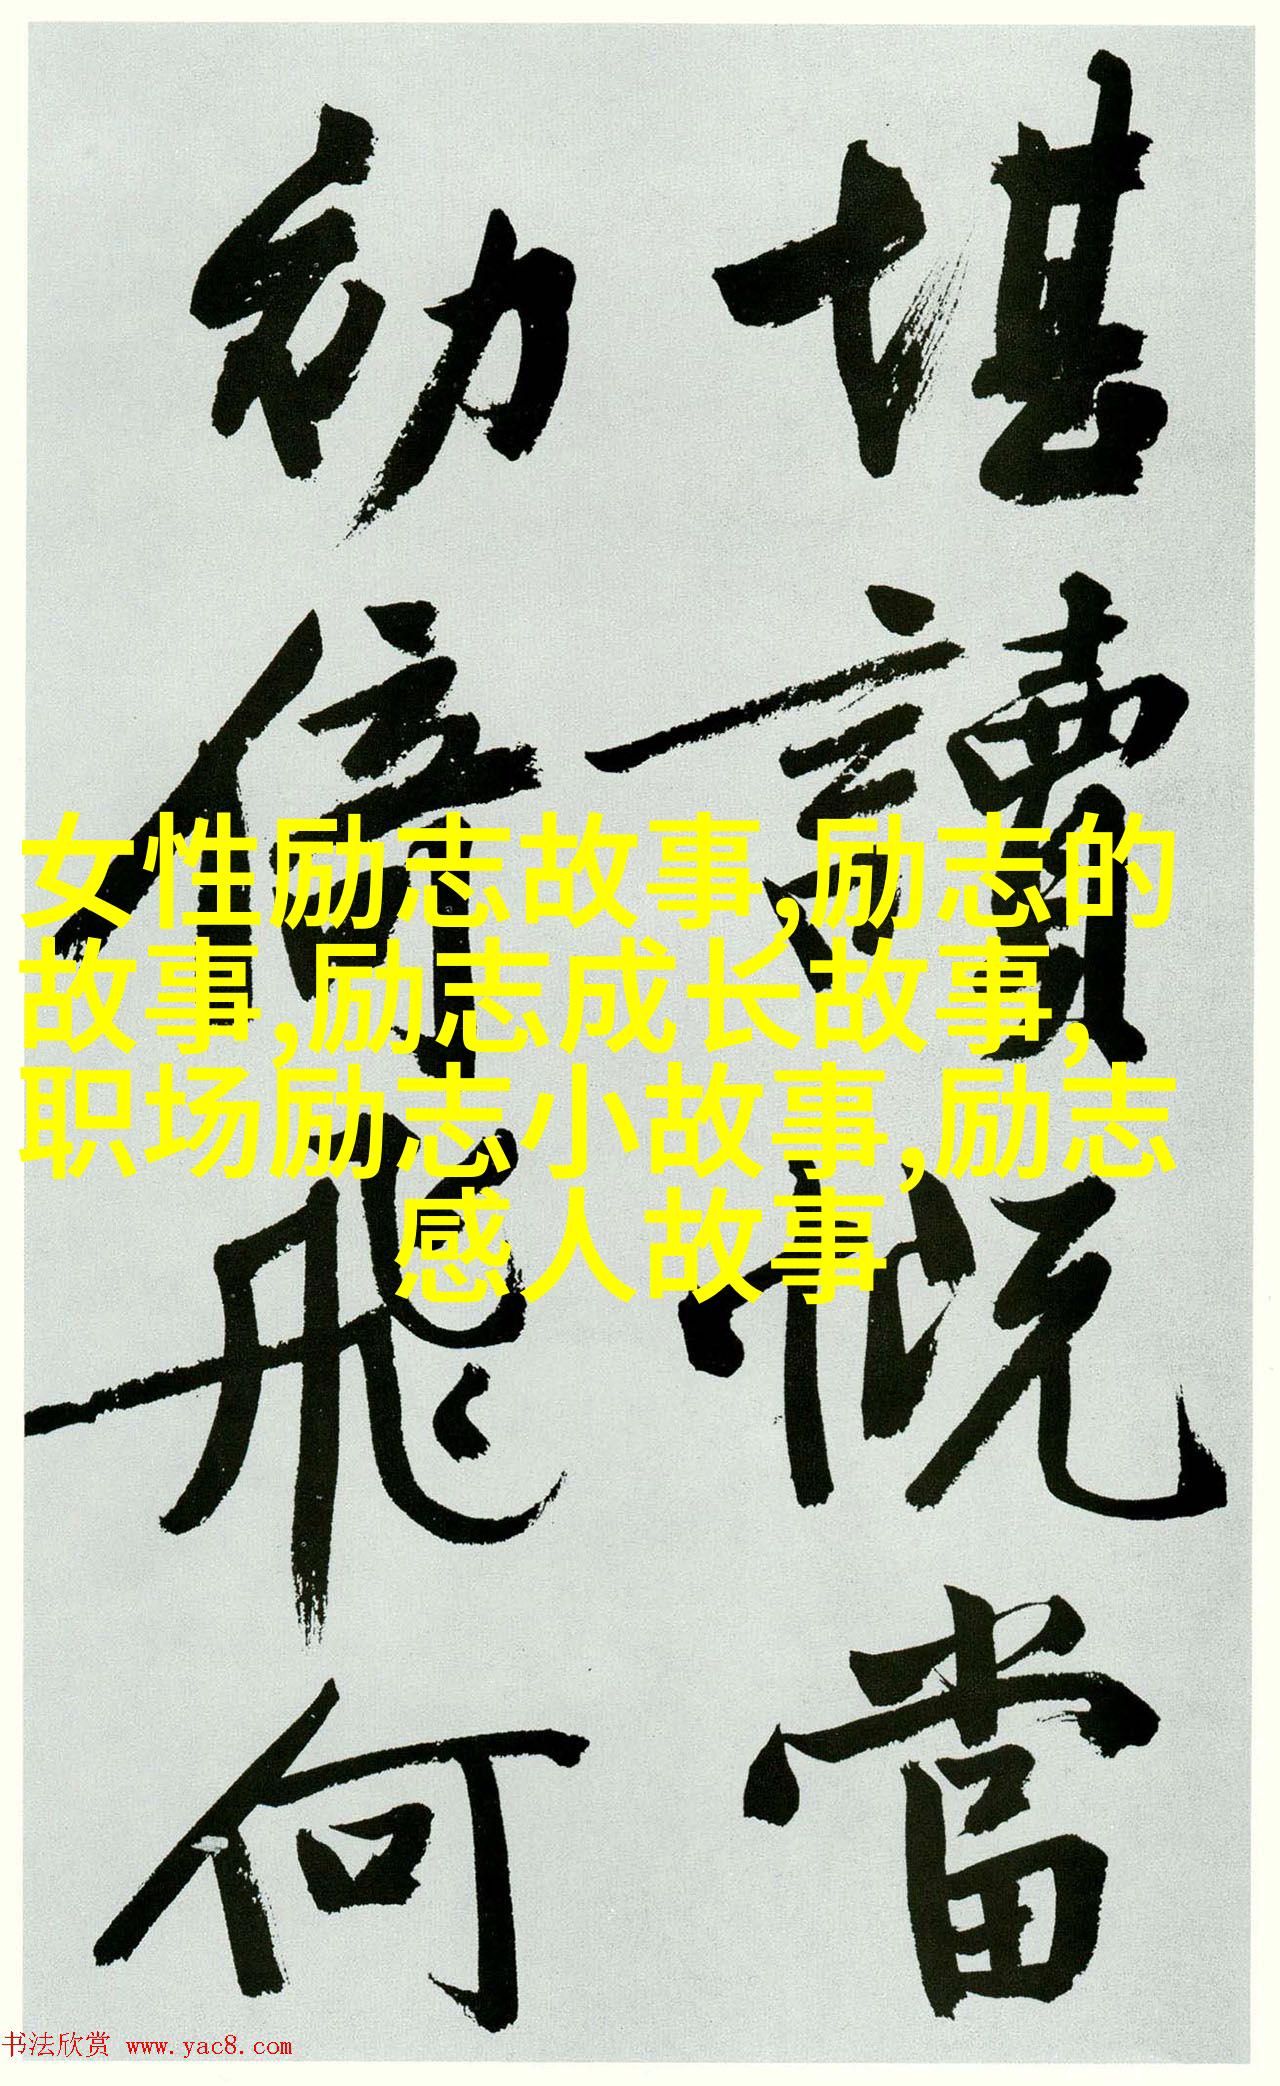 堪讀慨當
初倚飛何
女性励志故事,励志的
故事,励志成长故事,
职场励志小故事,励志
感人故事
书法欣赏 www.yac8.com